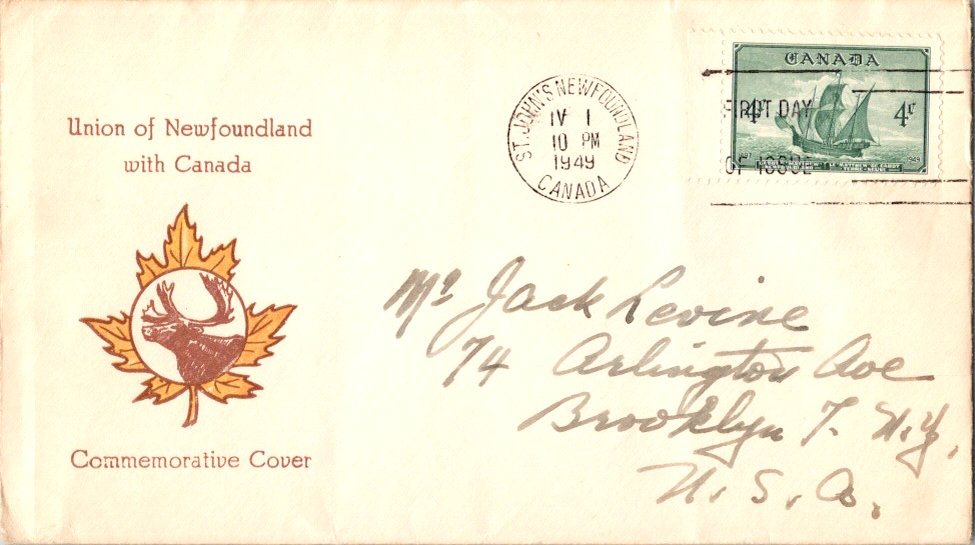 Union of Newfoundland
with Canada
Commemorative Cover
ST. JOHN'S NEWFOUNDLAND
IV 1
10 PM
1949
CANADA
FIRST DAY
OF ISSUE
CANADA
4¢ 4¢
1949
Mr Jack Levine
74 Arlington Ave
Brooklyn 7. N.Y,
U.S.A.